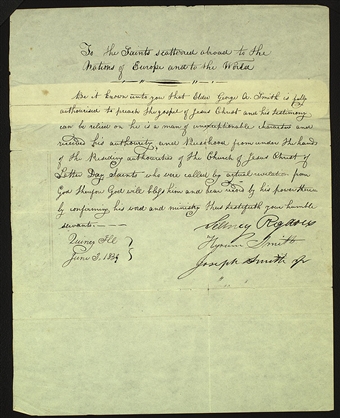 To the Saints scattered abroad to the
Nations of Europe and to the World
Be it known unto you that Elder George A. Smith is fully
authorised to preach the gospel of Jesus Christ and his testimony
can be relied on he is a man of unexceptionable character and
received his authority, and Priesthood, from under the hands
of the Presiding authorities of the Church of Jesus Christ of
Latter Day Saints who were called by actual revelation from
God therefore God will bless him and bear with by his power them
by confirming his word and ministry thus testifieth your humble
servants
Quincy Ill
June 3, 1839
Sidney Rigdon
Hyrum Smith
Joseph Smith Jr